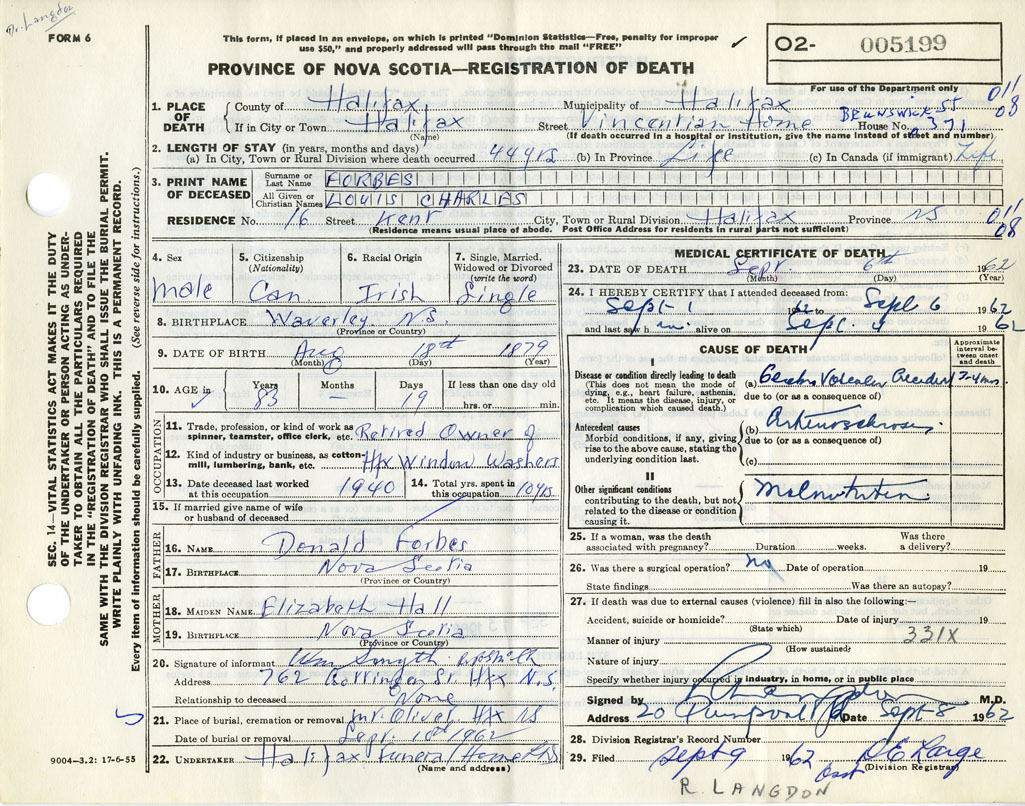 Dr. Langdon
FORM 6
This form, if placed in an envelope, on which is printed "Dominion Statistics—Free, penalty for improper
use $50," and properly addressed will pass through the mail "FREE"
✓
O2- 005199
PROVINCE OF NOVA SCOTIA—REGISTRATION OF DEATH
For use of the Department only
011
08
1. PLACE OF DEATH
County of Halifax Municipality of Halifax
BRUNSWICK ST
If in City or Town Halifax Street Vincentian Home House No. 2371
(Name) (If death occurred in a hospital or institution, give the name instead of street and number)
2. LENGTH OF STAY (in years, months and days)
(a) In City, Town or Rural Division where death occurred 44 yrs (b) In Province Life (c) In Canada (if immigrant) Life
3. PRINT NAME OF DECEASED
Surname or Last Name FORBES
All Given or Christian Names LOUIS CHARLES
RESIDENCE No. 16 Street Kent City, Town or Rural Division Halifax Province NS
011
08
(Residence means usual place of abode. Post Office Address for residents in rural parts not sufficient)
4. Sex
Male
5. Citizenship
(Nationality)
Can
6. Racial Origin
Irish
7. Single, Married, Widowed or Divorced
(write the word)
Single
8. BIRTHPLACE Waverley N.S.
(Province or Country)
9. DATE OF BIRTH Aug 18th 1879
(Month) (Day) (Year)
10. AGE in
Years Months Days If less than one day old
✓ 83 — 19 hrs. or min.
OCCUPATION
11. Trade, profession, or kind of work as
spinner, teamster, office clerk, etc. Retired Owner of
12. Kind of industry or business, as cotton-
mill, lumbering, bank, etc. Hfx Window Washers
13. Date deceased last worked
at this occupation 1940
14. Total yrs. spent in
this occupation 10 yrs
15. If married give name of wife
or husband of deceased
FATHER
16. NAME Donald Forbes
17. BIRTHPLACE Nova Scotia
(Province or Country)
MOTHER
18. MAIDEN NAME Elizabeth Hall
19. BIRTHPLACE Nova Scotia
(Province or Country)
20. Signature of informant Wm Smyth
Address 762 St Hfx N.S.
Relationship to deceased None
21. Place of burial, cremation or removal Mt. Olivet Hfx NS
Date of burial or removal Sept. 1962
22. UNDERTAKER Halifax Funeral Home
(Name and address)
MEDICAL CERTIFICATE OF DEATH
23. DATE OF DEATH Sept. 6th 1962
(Month) (Day) (Year)
24. I HEREBY CERTIFY that I attended deceased from:
Sept 1 1962 to Sept 6 1962
and last saw him alive on Sept. 4 1962
CAUSE OF DEATH
Approximate interval between onset and death
I
Disease or condition directly leading to death
(This does not mean the mode of
dying, e.g., heart failure, asthenia,
etc. It means the disease, injury, or
complication which caused death.)
(a) Cerebro Vascular Accident
due to (or as a consequence of)
Antecedent causes
Morbid conditions, if any, giving
rise to the above cause, stating the
underlying condition last.
(b) Arteriosclerosis
due to (or as a consequence of)
(c)
II
Other significant conditions
contributing to the death, but not
related to the disease or condition
causing it.
Malnutrition
25. If a woman, was the death
associated with pregnancy? Duration weeks. Was there
a delivery?
26. Was there a surgical operation? no Date of operation 19
State findings Was there an autopsy?
27. If death was due to external causes (violence) fill in also the following:—
Accident, suicide or homicide? Date of injury 19
(State which)
331X
Manner of injury
(How sustained)
Nature of injury
Specify whether injury occurred in industry, in home, or in public place
Signed by M.D.
Address 20 Date Sept 8 1962
28. Division Registrar's Record Number
29. Filed Sept 9 1962
(Division Registrar)
R. LANGDON
SEC. 14—VITAL STATISTICS ACT MAKES IT THE DUTY
OF THE UNDERTAKER OR PERSON ACTING AS UNDER-
TAKER TO OBTAIN ALL THE PARTICULARS REQUIRED
IN THE "REGISTRATION OF DEATH" AND TO FILE THE
SAME WITH THE DIVISION REGISTRAR WHO SHALL ISSUE THE BURIAL PERMIT.
WRITE PLAINLY WITH UNFADING INK. THIS IS A PERMANENT RECORD.
Every item of information should be carefully supplied. (See reverse side for instructions.)
9004—3.2: 17-6-55